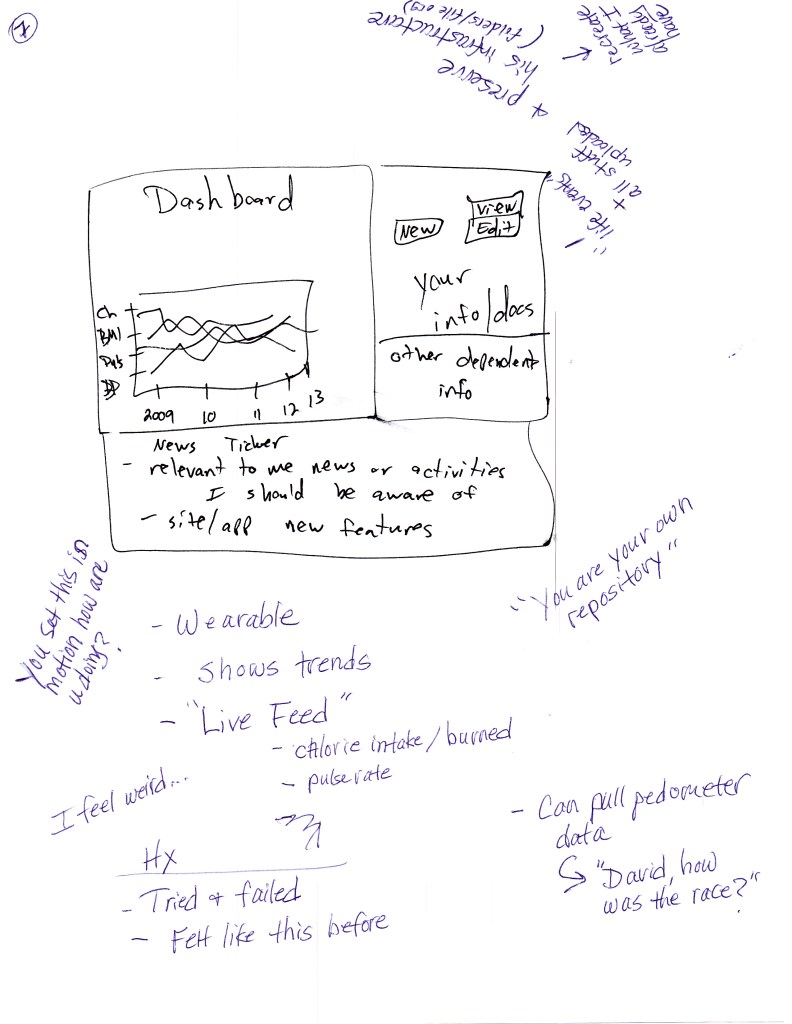 recreate
what I
already
have
+ preserve
his infrastructure
(folders/file org)
"life events"
+ all stuff
uploaded
Dashboard
New
View
Edit
your
info/docs
other dependent
info
Ch
BMI
Puls
2009 10 11 12 13
News Ticker
- relevant to me news or activities
I should be aware of
- site/app new features
You set this in
motion how are
u doing?
"You are your own
repository"
- Wearable
- Shows trends
- "Live Feed"
- calorie intake/burned
- pulse rate
I feel weird...
Hx
- Tried & failed
- Felt like this before
- Can pull pedometer
data
"David, how
was the race?"